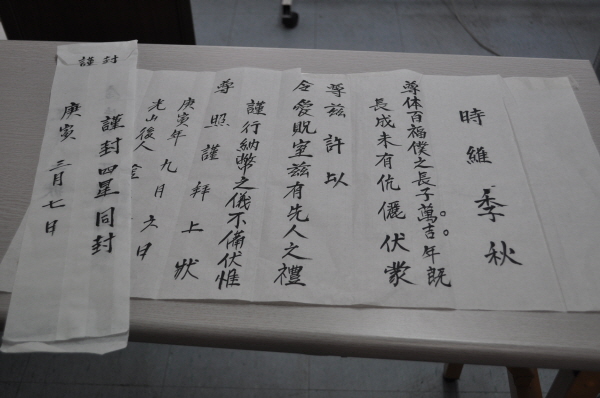 時維季秋
尊体百福僕之長子萬。吉。年既
長成未有伉儷伏蒙
尊玆許以
令愛貺室玆有先人之禮
謹行納幣之儀不備伏惟
尊照謹拜上狀
庚寅年九月六日
光山後人金
謹封
謹封四星同封
庚寅三月七日